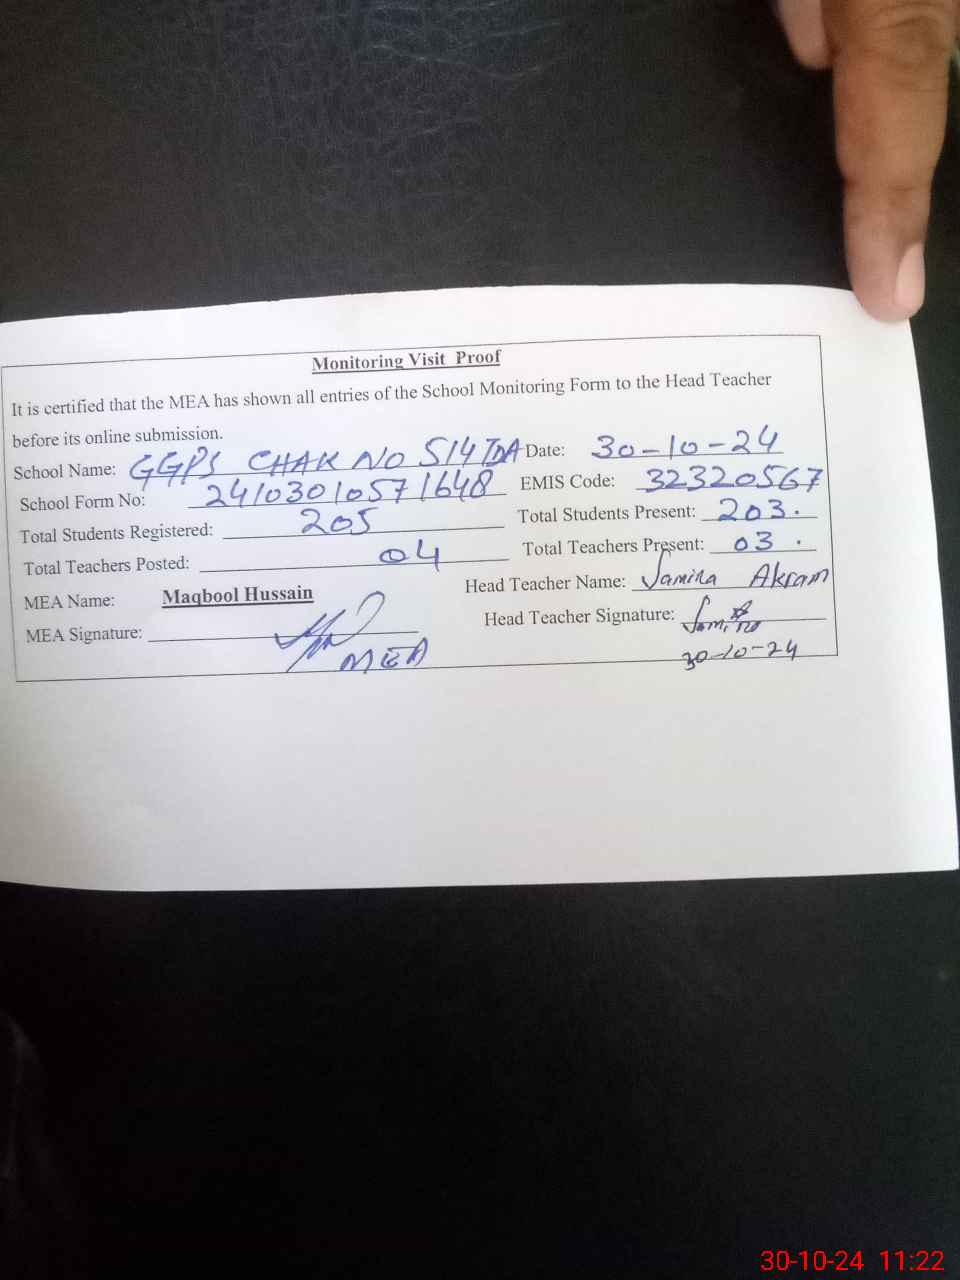 Monitoring Visit Proof
It is certified that the MEA has shown all entries of the School Monitoring Form to the Head Teacher
before its online submission.
School Name: GGPS CHAK NO 514 TDA Date: 30-10-24
School Form No: 24103010571648 EMIS Code: 32320567
Total Students Registered: 205 Total Students Present: 203.
Total Teachers Posted: 04 Total Teachers Present: 03.
MEA Name: Maqbool Hussain Head Teacher Name: Samina Akram
MEA Signature: MEA Head Teacher Signature: Samina
30-10-24
30-10-24 11:22